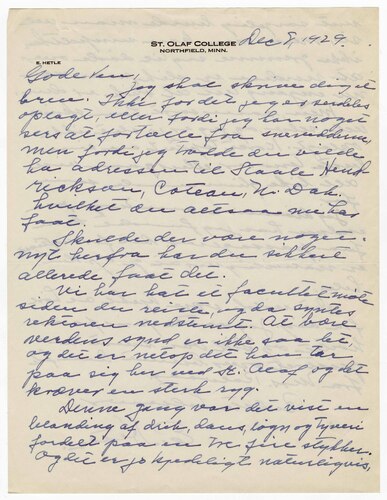 ST. OLAF COLLEGE
NORTHFIELD, MINN.
E. HETLE
Dec 8, 1929.
Gode Ven,
jeg skal skrive dig et
brev. Ikke fordet jeg er særdeles
oplagt, eller fordi jeg har noget
sers at fortælle fra
men fordi jeg trodde du vilde
ha adressen til Staale Hend-
rickson, Coteau, N. Dak.
hvilket du altsaa nu har
faat.
Skulde der være noget
nyt herfra har du sikkert
allerede faat det.
Vi har hat et facultetmøte
siden du reiste, og da syntes
rektoren nedstemt. At bære
verdens synd er ikke saa let,
og det er netop det han tar
paa sig her ved St. Olaf og det
kræver en sterk ryg.
Denne gang var det visst en
blanding af drik, dans, løgn og tyveri
fordelt paa en tre fire stykker.
Og det er jo kjedeligt naturligvis,